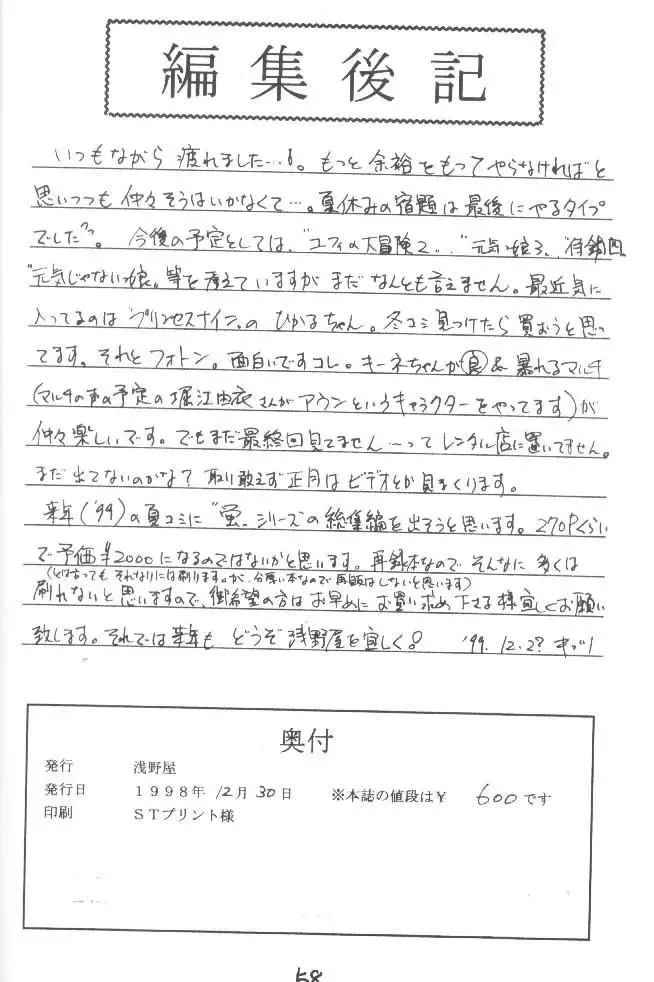 編集後記
いつもながら 疲れました…。もっと余裕をもってやらなければと
思いつつも仲々そうはいかなくて…。夏休みの宿題は最後にやるタイプ
でした。今後の予定としては、"ユフィの大冒険2" "元気娘3、
"元気じゃない娘。等を考えていますが まだなんとも言えません。最近気に
入ってるのは"プリンセスナイン"の ひかるちゃん。冬コミ見つけたら買おうと思っ
てます。それとフォトン。面白いですコレ。キーネちゃんが㊛& 暴れるマルチ
(マルチの声の予定の堀江由衣さんがアウンというキャラクターをやってます)が
仲々楽しいです。でもまだ最終回見てません…ってレンタル店に置いてません。
まだ出てないのかな? 取り敢えず正月はビデオとか見まくります。
来年('99)の夏コミに"蛍"シリーズの総集編を出そうと思います。270Pくらい
で予価¥2000になるのではないかと思います。再録本なのでそんなに多くは
(とは言っても それなりには刷ります。が、分厚い本なので再販はしないと思います)
刷れないと思いますので、御希望の方はお早めにお買い求め下さる様宜しくお願い
致します。それでは来年も どうぞ浅野屋を宜しく! '99.12.2? キヅ1
奥付
発行 浅野屋
発行日 1998年 12月 30日 ※本誌の値段は¥ 600です
印刷 STプリント様
58